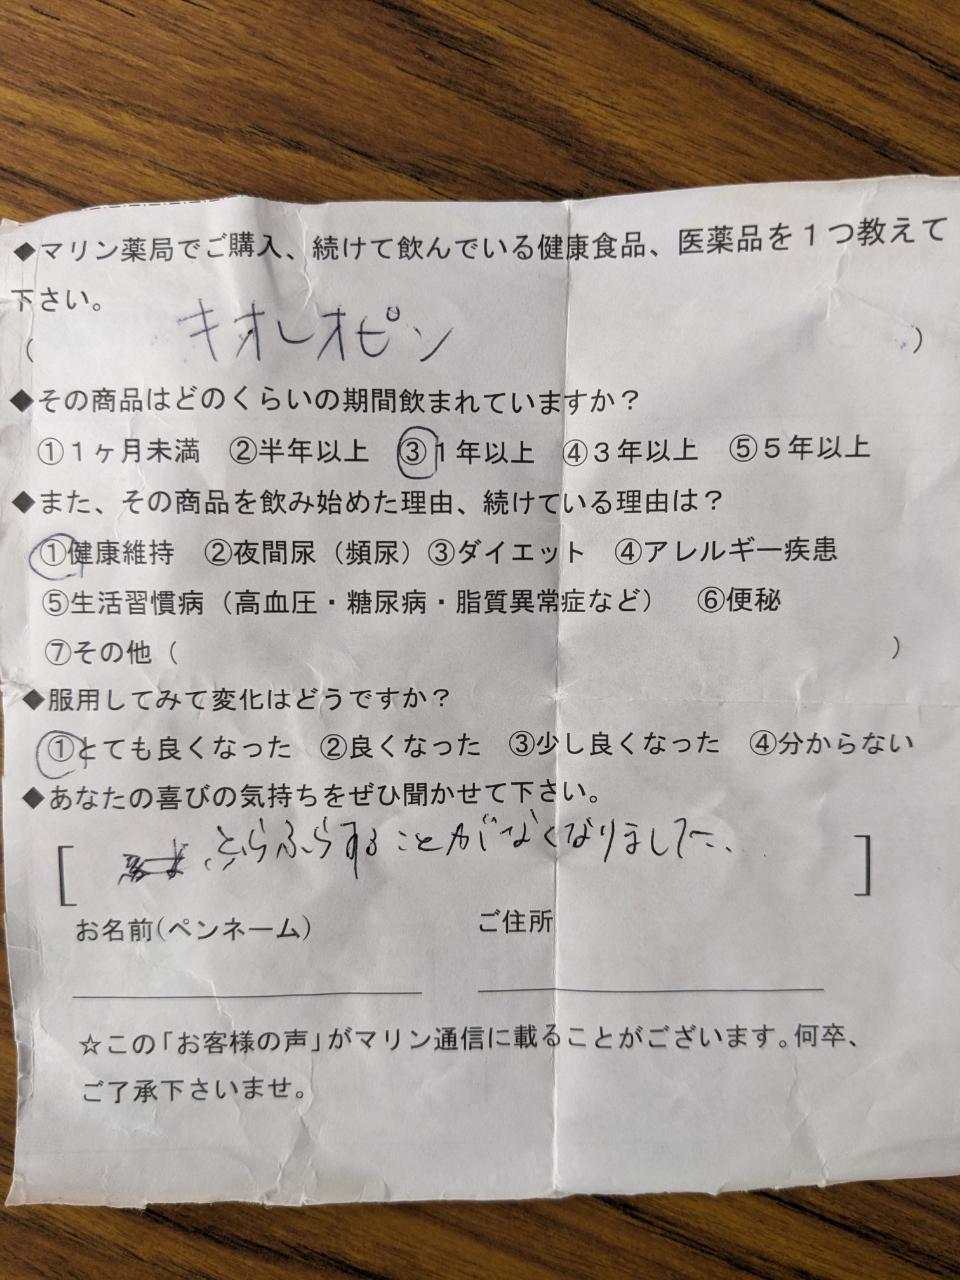 ◆マリン薬局でご購入、続けて飲んでいる健康食品、医薬品を１つ教えて
下さい。
（ キオレオピン ）
◆その商品はどのくらいの期間飲まれていますか？
①１ヶ月未満 ②半年以上 ③１年以上 ④３年以上 ⑤５年以上
◆また、その商品を飲み始めた理由、続けている理由は？
①健康維持 ②夜間尿（頻尿）③ダイエット ④アレルギー疾患
⑤生活習慣病（高血圧・糖尿病・脂質異常症など） ⑥便秘
⑦その他（ ）
◆服用してみて変化はどうですか？
①とても良くなった ②良くなった ③少し良くなった ④分からない
◆あなたの喜びの気持ちをぜひ聞かせて下さい。
[ ふらふらすることがなくなりました。 ]
お名前(ペンネーム) ご住所
☆この「お客様の声」がマリン通信に載ることがございます。何卒、
ご了承下さいませ。